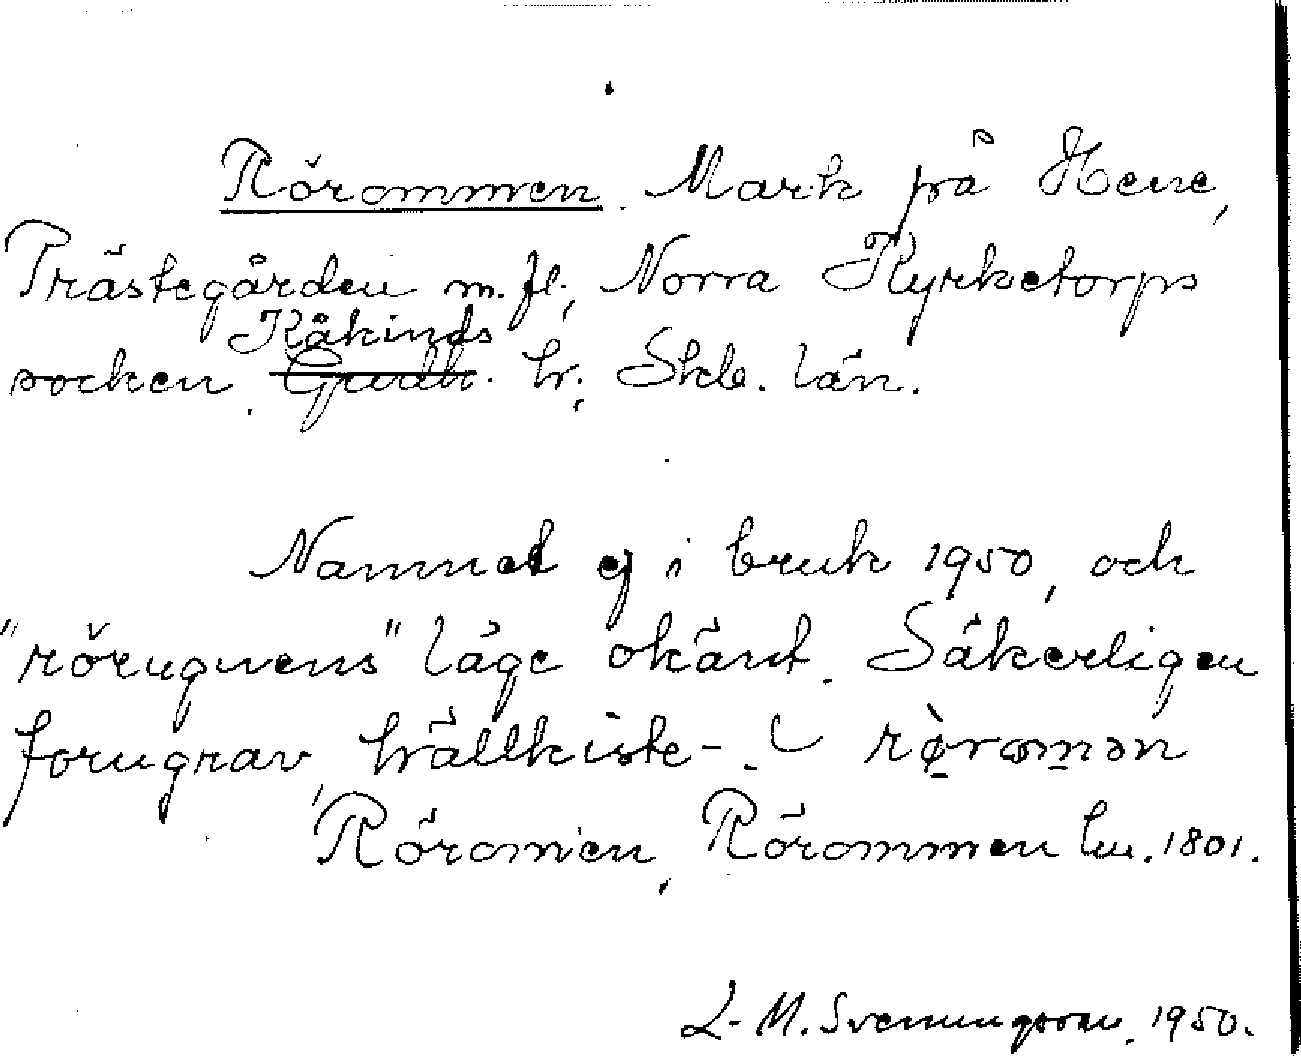 Rörommen. Mark på Hene,
Prästegården m. fl., Norra Kyrketorps
Kåkinds
socken. Gudh. hr., Skb. län.
Namnet ej i bruk 1950, och
"rörugnens" läge okänt. Säkerligen
forngrav, hällkista -
Röromen, Rörommen lm. 1801.
L-M. Svenungsson. 1950.